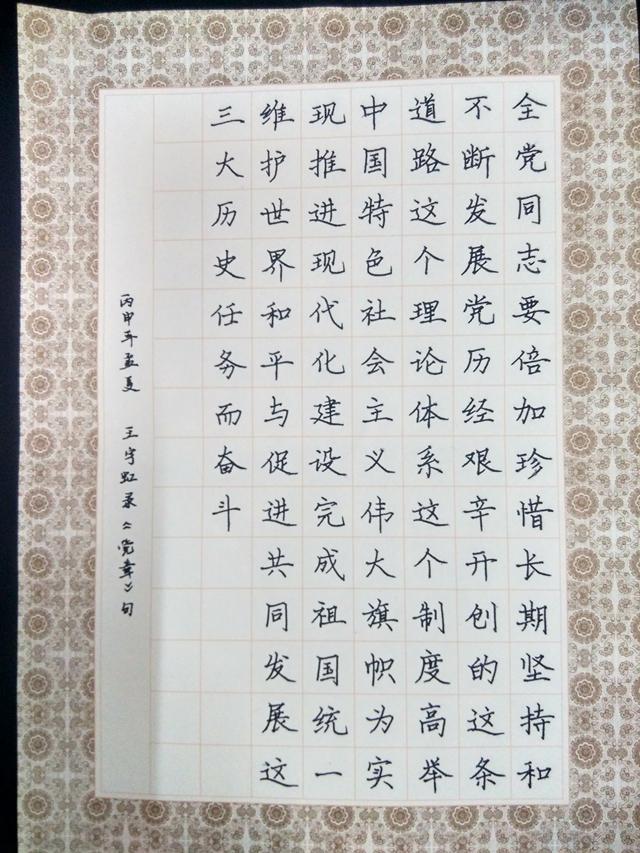 全党同志要倍加珍惜长期坚持和
不断发展党历经艰辛开创的这条
道路这个理论体系这个制度高举
中国特色社会主义伟大旗帜为实
现推进现代化建设完成祖国统一
维护世界和平与促进共同发展这
三大历史任务而奋斗
丙申年孟夏 王宇虹录《党章》句